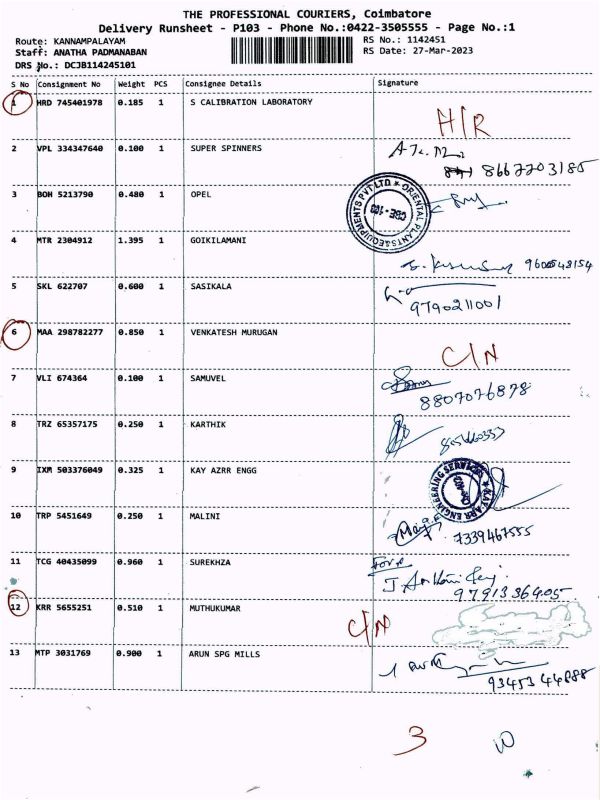 THE PROFESSIONAL COURIERS, Coimbatore
Delivery Runsheet - P103 - Phone No.:0422-3505555 - Page No.:1
Route: KANNAMPALAYAM RS No.: 1142451
Staff: ANATHA PADMANABAN RS Date: 27-Mar-2023
DRS No.: DCJB114245101
S No Consignment No Weight PCS Consignee Details Signature
1 HRD 745401978 0.185 1 S CALIBRATION LABORATORY
H/R
2 VPL 334347640 0.100 1 SUPER SPINNERS
8667703185
3 BOH 5213790 0.480 1 OPEL
ORIENTAL PLANTS & EQUIPMENTS PVT LTD
CBE-103
4 MTR 2304912 1.395 1 GOIKILAMANI
5 SKL 622707 0.600 1 SASIKALA
9790211001
6 MAA 298782277 0.850 1 VENKATESH MURUGAN
C/N
7 VLI 674364 0.100 1 SAMUVEL
8807076878
8 TRZ 65357175 0.250 1 KARTHIK
9 IXM 503376049 0.325 1 KAY AZRR ENGG
KAY ARR ENGINEERING SERVICES
10 TRP 5451649 0.250 1 MALINI
7339467555
11 TCG 40435099 0.960 1 SUREKHZA
12 KRR 5655251 0.510 1 MUTHUKUMAR
C/N
13 MTP 3031769 0.900 1 ARUN SPG MILLS
3 10